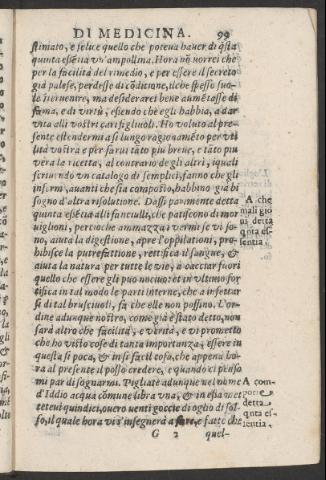 DI MEDICINA. 99
stimato, e felice quello che poteua hauer di q̃sta
quinta essẽtia vn'ampollina. Hora nõ vorrei che
per la facilità del rimedio, e per essere il secreto
già palese, perdesse di cõditione, ilche spesso suo-
le interuenire, ma desiderarei bene aumẽtasse di
fama, e di virtù, essendo che egli habbia, a dar
vita alli vostri cari figliuoli. Ho voluto al pre-
sente estendermi a sì lungo ragionamẽto per vti
lità vostra e per farui tãto piu breue, e tãto piu
vera la ricetta, al contrario de gli altri, iquali
scriuendo vn catalogo di semplici, fanno che gli
infermi, auanti che sia composto, habbino già bi
sogno d'altra risolutione. Dassi parimente detta
A che
quinta essẽtia alli fanciulli, che patiscono di mor
mali gio
uiglioni, percioche ammazza i vermi se vi so-
ui detta
no, aiuta la digestione, apre l'oppilationi, pro-
q̃nta es-
hibisce la putrefattione, rettifica il sangue, &
sentia.
aiuta la natura per tutte le vie, a cacciar fuori
quello che essere gli puo nociuo: et in vltimo for
tifica in tal modo le parti interne, che a infettar
si di tal brusciuoli, fà che elle non possino. L'or-
dine adunque nostro, come già è stato detto, non
sarà altro che facilità, e verità, e vi prometto
che ho visto cose di tanta importanza, essere in
questa sì poca, & in sì facil cosa, che appena ho-
ra al presente il posso credere, e quando ci penso
mi par di sognarmi. Pigliate adunque nel nome
A com-
d'Iddio acqua cõmune libra vna, & in essa met
porre
teteui quindici, ouero uenti goccie di oglio di sol-
detta
q̃nta es-
fo, il quale hora vi s'insegnerà a fare, e fatte che
sentia.
G 2 quel-